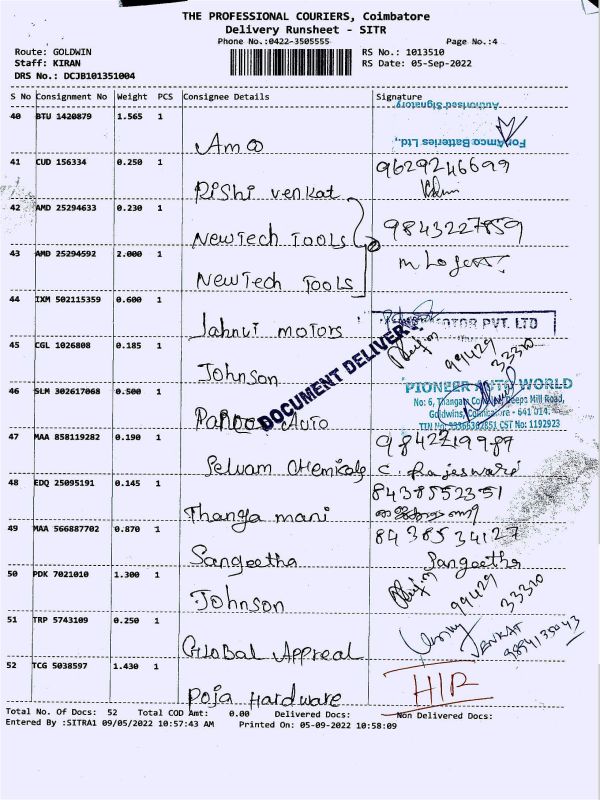 THE PROFESSIONAL COURIERS, Coimbatore
Delivery Runsheet - SITR
Phone No.:0422-3505555 Page No.:4
Route: GOLDWIN RS No.: 1013510
Staff: KIRAN RS Date: 05-Sep-2022
DRS No.: DCJB101351004
S No Consignment No Weight PCS Consignee Details Signature
Authorised Signatory
40 BTU 1420879 1.565 1
For Amco Batteries Ltd.,
Amco
41 CUD 156334 0.250 1 9629246699
Rishi venkat
42 AMD 25294633 0.230 1
NewTech Tools 9843227859
43 AMD 25294592 2.000 1
NewTech Tools
44 IXM 502115359 0.600 1
Jahnvi motors MOTOR PVT. LTD
45 CGL 1026808 0.185 1 99429 33310
Johnson
DOCUMENT DELIVERY
46 SLM 302617068 0.500 1 PIONEER AUTO WORLD
No: 6, Thangam Deepa Mill Road,
Auto Goldwins, Coimbatore - 641 014.
CST No: 1192923
47 MAA 858119282 0.190 1 9842719987
Selvam Chemicals C. Rajeswari
48 EDQ 25095191 0.145 1 8438552351
Thanga mani
49 MAA 566887702 0.870 1 8438534127
Sangeetha Sangeetha
50 PDK 7021010 1.300 1 99429 33310
Johnson
51 TRP 5743109 0.250 1 VENKAT
Global Appreal 9894135043
52 TCG 5038597 1.430 1
Poja Hardware
Total No. Of Docs: 52 Total COD Amt: 0.00 Delivered Docs: Non Delivered Docs:
Entered By :SITRA1 09/05/2022 10:57:43 AM Printed On: 05-09-2022 10:58:09